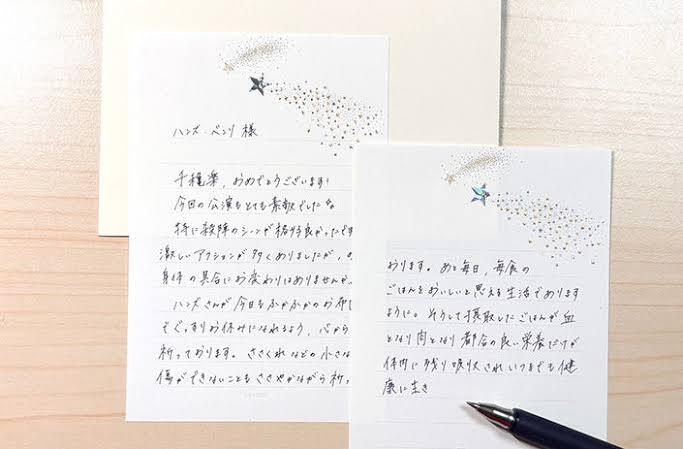 ハンズ・ベンリ 様
千穐楽、おめでとうございます!
今日の公演もとても素敵でした
特に殺陣のシーンが格好良かったです
激しいアクションが多くありましたが、
身体の具合にお変わりはありませんか
ハンズさんが今日もふかふかのお布
でぐっすりお休みになれるよう、心から
祈っております。ささくれなどの小さな
傷ができないこともささやかながら祈っ
おります。あと毎日、毎食の
ごはんをおいしいと思える生活であります
ように。そうして摂取したごはんが血
となり肉となり都合の良い栄養だけが
体内に残り吸収されいつまでも健
康に生き